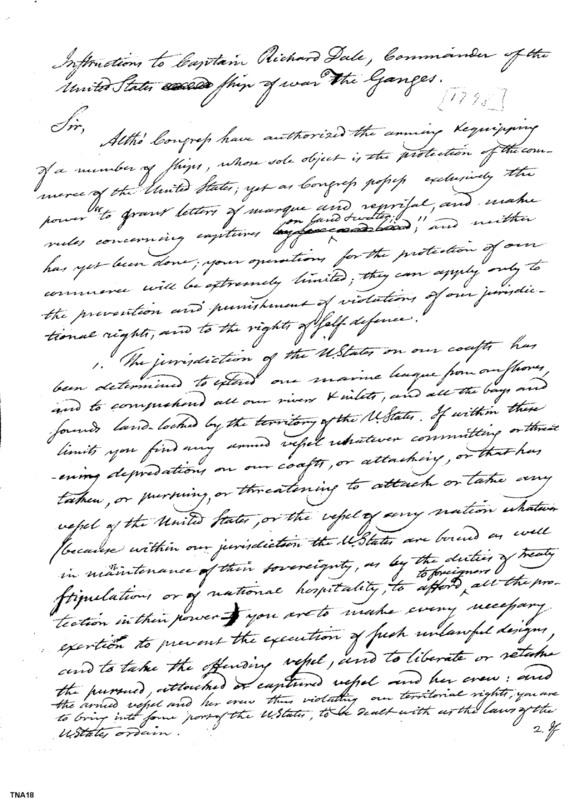 Instructions to Captain Richard Dale, Commander of the
United States Ship of war The Ganges.
[1798]
Sir,
Altho' Congress have authorized the arming & equipping
of a number of ships, whose sole object is the protection of the com-
merce of the United States; yet as Congress possess exclusively the
power "to grant letters of marque and reprisal, and make
rules concerning captures on land & water;" and neither
has yet been done; your operations for the protection of our
commerce will be extremely limited; they can apply only to
the prevention and punishment of violations of our jurisdic-
tional rights, and to the rights of self defence.
1. The jurisdiction of the U.States on our coasts has
been determined to extend one marine league from our shores,
and to comprehend all our rivers & inlets, and all the bays and
sounds land-locked by the territory of the U.States. If within these
limits you find any armed vessel whatever committing or threat
-ening depredations on our coasts, or attacking, or that has
taken, or pursuing, or threatening to attack or take any
vessel of the United States, or the vessel of any nation whatever
(because within our jurisdiction the U.States are bound as well
in maintenance of their sovereignty, as by the duties of treaty
stipulations or of national hospitality, to afford to foreigners all the pro-
tection in their power) you are to make every necessary
exertion to prevent the execution of such unlawful designs,
and to take the offending vessel, and to liberate or retake
the pursued, attacked or captured vessel and her crew: and
the armed vessel and her crew thus violating our territorial rights, you are
to bring into some port of the U.States, to be dealt with as the laws of the
U.States ordain.
2. If
TNA18